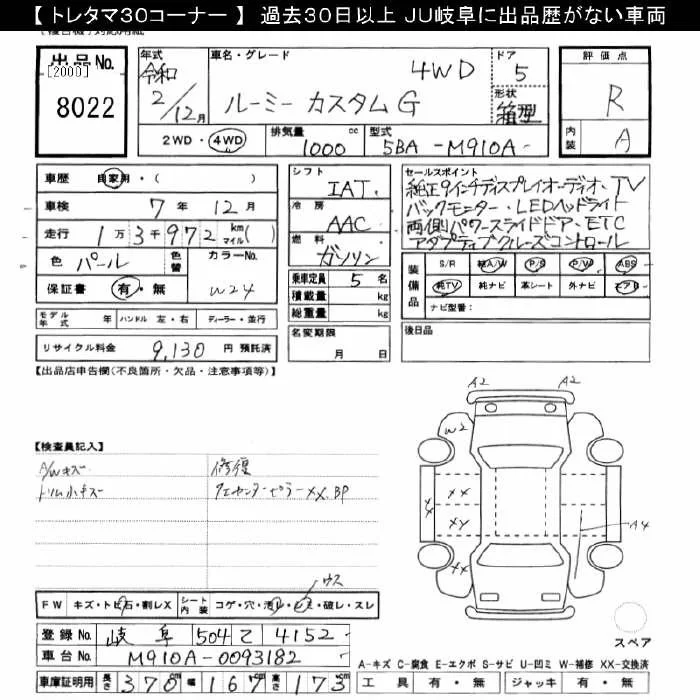 【 トレタマ30コーナー 】 過去30日以上 JU岐阜に出品歴がない車両
出品No. 年式 車名・グレード ドア 評価点
[2000] 令和 4WD 5
8022 2/12月 ルーミー カスタムG 形状 箱型 R
2WD・4WD 排気量 1000 cc 型式 5BA-M910A 内装 A
車歴 自家用・( )
車検 7年 12月
走行 1万3千972 km(マイル)
色 パール 色替 カラーNo.
保証書 有・無 W24
モデル年式 年 ハンドル 左・右 ディーラー・並行
リサイクル料金 9,130 円 預託済
シフト IAT
冷房 AAC
燃料 ガソリン
乗車定員 5 名
積載量 kg
総重量 kg
名変期限
月 日
セールスポイント
純正9インチディスプレイオーディオ、TV
バックモニター、LEDヘッドライト
両側パワースライドドア、ETC
アダプティブクルーズコントロール
装備品 S/R 純A/W P/S P/W ABS
純TV 純ナビ 革シート 外ナビ エアB
ナビ型番:
後日品
【出品店申告欄(不良箇所・欠品・注意事項等)】
A2 A2
W2
XX
XX
XY
A4
XX
【検査員記入】
A/Wキズ 修復
トリム小キズ クエ センターピラーXX、BP
ウス
FW キズ・トビ石・割レX シート内装 コゲ・穴・汚レ・シミ・破レ・スレ
登録No. 岐阜 504 て 4152
車台No. M910A-0093182
車庫証明用 長さ 370 cm 幅 167 cm 高さ 173 cm
スペア
A-キズ C-腐食 E-エクボ S-サビ U-凹ミ W-補修 XX-交換済
工具 有・無 ジャッキ 有・無